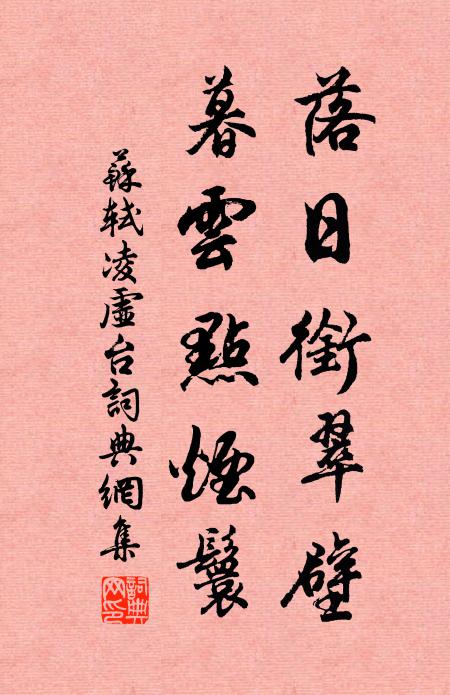 落日銜翠壁
暮雲點煙鬟
蘇軾凌虛台詞典網集